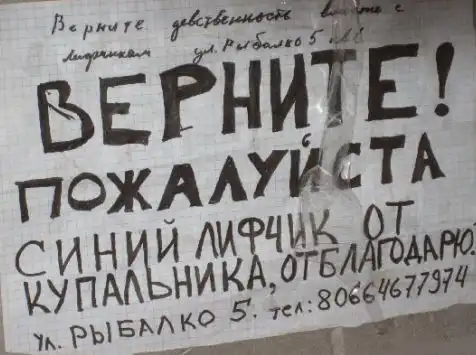 Верните девственность вместе с
лифчиком ул. Рыбалко 5
ВЕРНИТЕ!
ПОЖАЛУЙСТА
СИНИЙ ЛИФЧИК ОТ
КУПАЛЬНИКА, ОТБЛАГОДАРЮ!
ул. РЫБАЛКО 5. тел: 80664677974